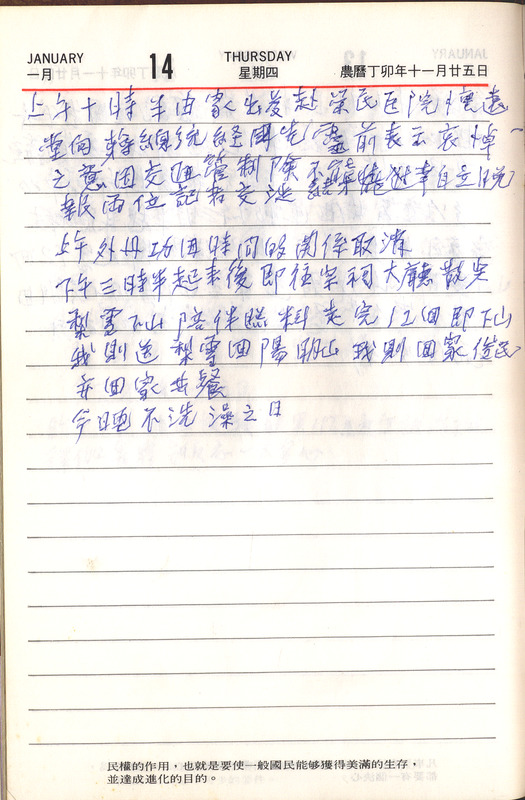 JANUARY
一月
14
THURSDAY
星期四
農曆丁卯年十一月廿五日
上午十時半由家出發赴榮民医院懷遠
堂向 總統經國先 靈前表示哀悼
之意因交通管制 不
報兩位記者交談 自立晚
上午外丹功因時间的関係取消
下午三時半起來後即往宗祠大廳散步
梨雪下山陪伴照料走完12個即下山
我則送梨雪回陽明山我則回家 民
弃回家共餐
今日電不洗澡之日
民權的作用，也就是要使一般國民能夠獲得美滿的生存，
並達成進化的目的。